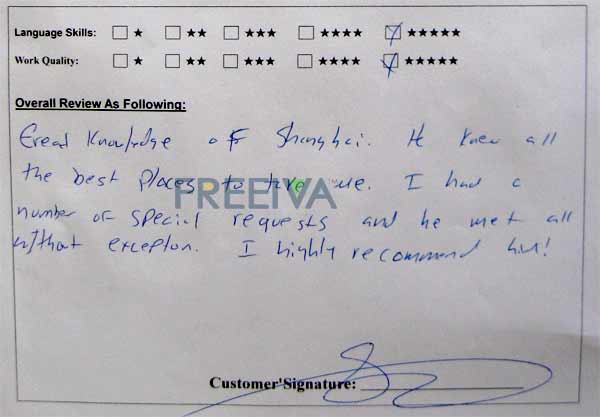 Language Skills: ☐ ★ ☐ ★★ ☐ ★★★ ☐ ★★★★ ☑ ★★★★★
Work Quality: ☐ ★ ☐ ★★ ☐ ★★★ ☐ ★★★★ ☑ ★★★★★
Overall Review As Following:
Great Knowledge of Shanghai. He knew all
the best places to take me. I had a
FREEIVA
number of special requests and he met all
without exception. I highly recommend him!
Customer'Signature: